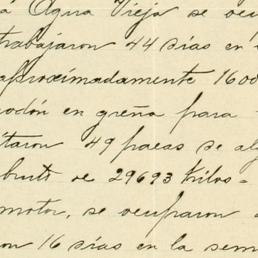 á Agua Vieja se ocu
trabajaron 44 días en
aproximadamente 1600
odón en greña para
itaron 49 pacas de al
bruto de 29693 kilos =
motor, se ocuparon
on 16 días en la sem